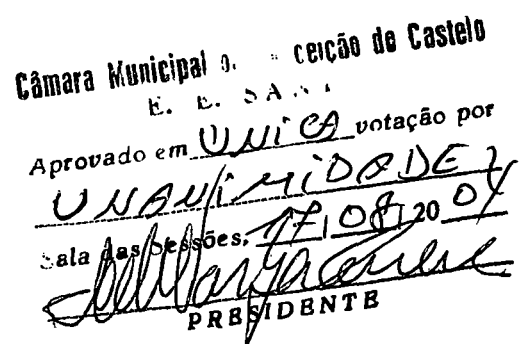 Câmara Municipal de Conceição de Castelo
E. E. SANTO
Aprovado em UNICA votação por
UNANIMIDADE
Sala das Sessões, 17/08/2004
PRESIDENTE